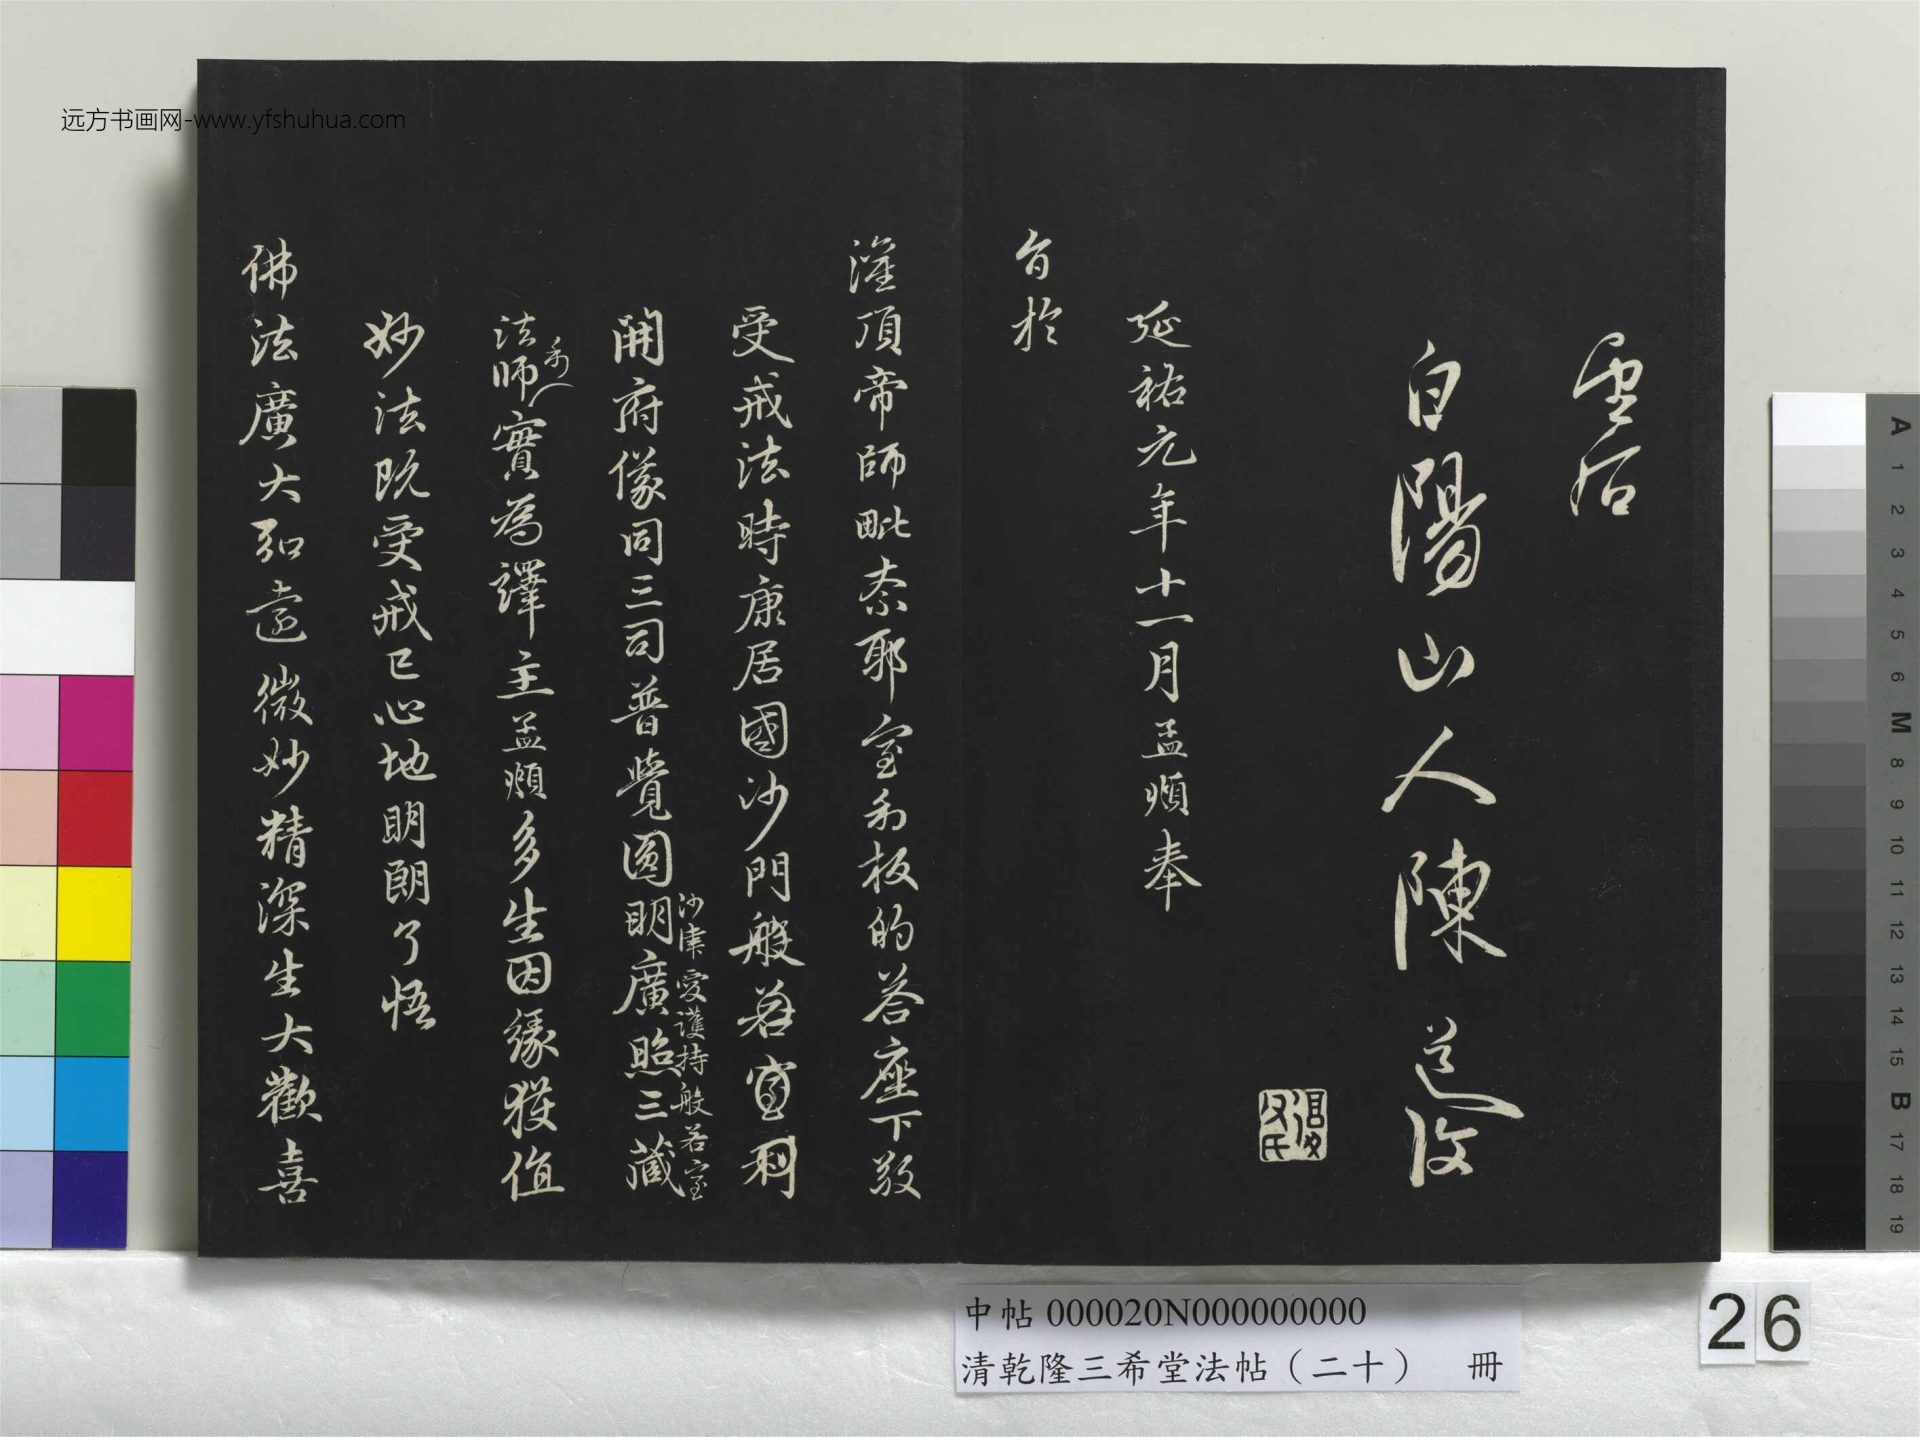 雲石
白陽山人陳道復
延祐元年十一月孟頫奉
旨於
灌頂帝師毗奈耶室利板的荅座下敬
受戒法時康居國沙門般若室利
開府儀同三司普覺圓明廣照三藏
沙律愛護持般若室
利
法師實為譯主孟頫多生因緣獲值
妙法既受戒已心地明朗了悟
佛法廣大弘遠微妙精深生大歡喜
远方书画网-www.yfshuhua.com
中帖 000020N000000000
清乾隆三希堂法帖（二十） 冊
26
A 1 2 3 4 5 6 M 8 9 10 11 12 13 14 15 B 17 18 19